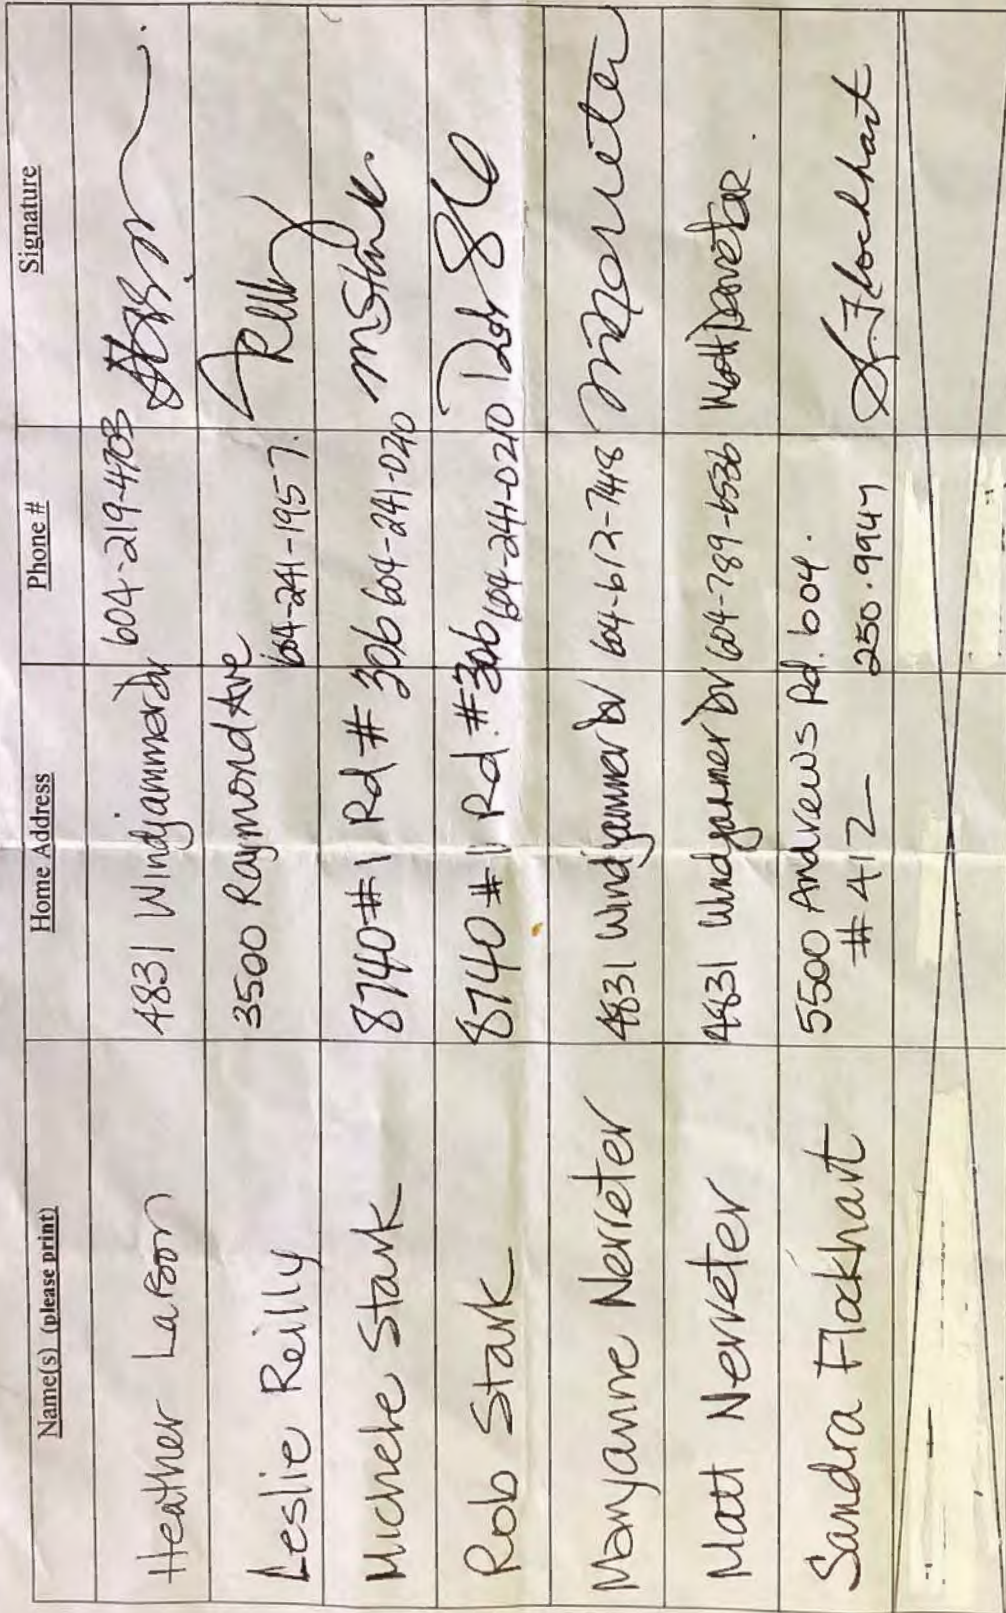 Name(s) (please print) Home Address Phone # Signature
Heather Larson 4831 Windjammer dr 604-219-4703
Leslie Reilly 3500 Raymond Ave 604-241-1957. Reilly
Michele Stark 8740 #1 Rd # 306 604-241-0240 MStark
Rob Stark 8740 #1 Rd. #306 604-241-0240
Maryanne Nerreter 4831 Windjammer Dr 604-612-7418
Matt Nerreter 4831 Windjammer Dr 604-789-6536 Matt Nerreter
Sandra Flockhart 5500 Andrews Rd. 604. S. Flockhart
#412 250.9947